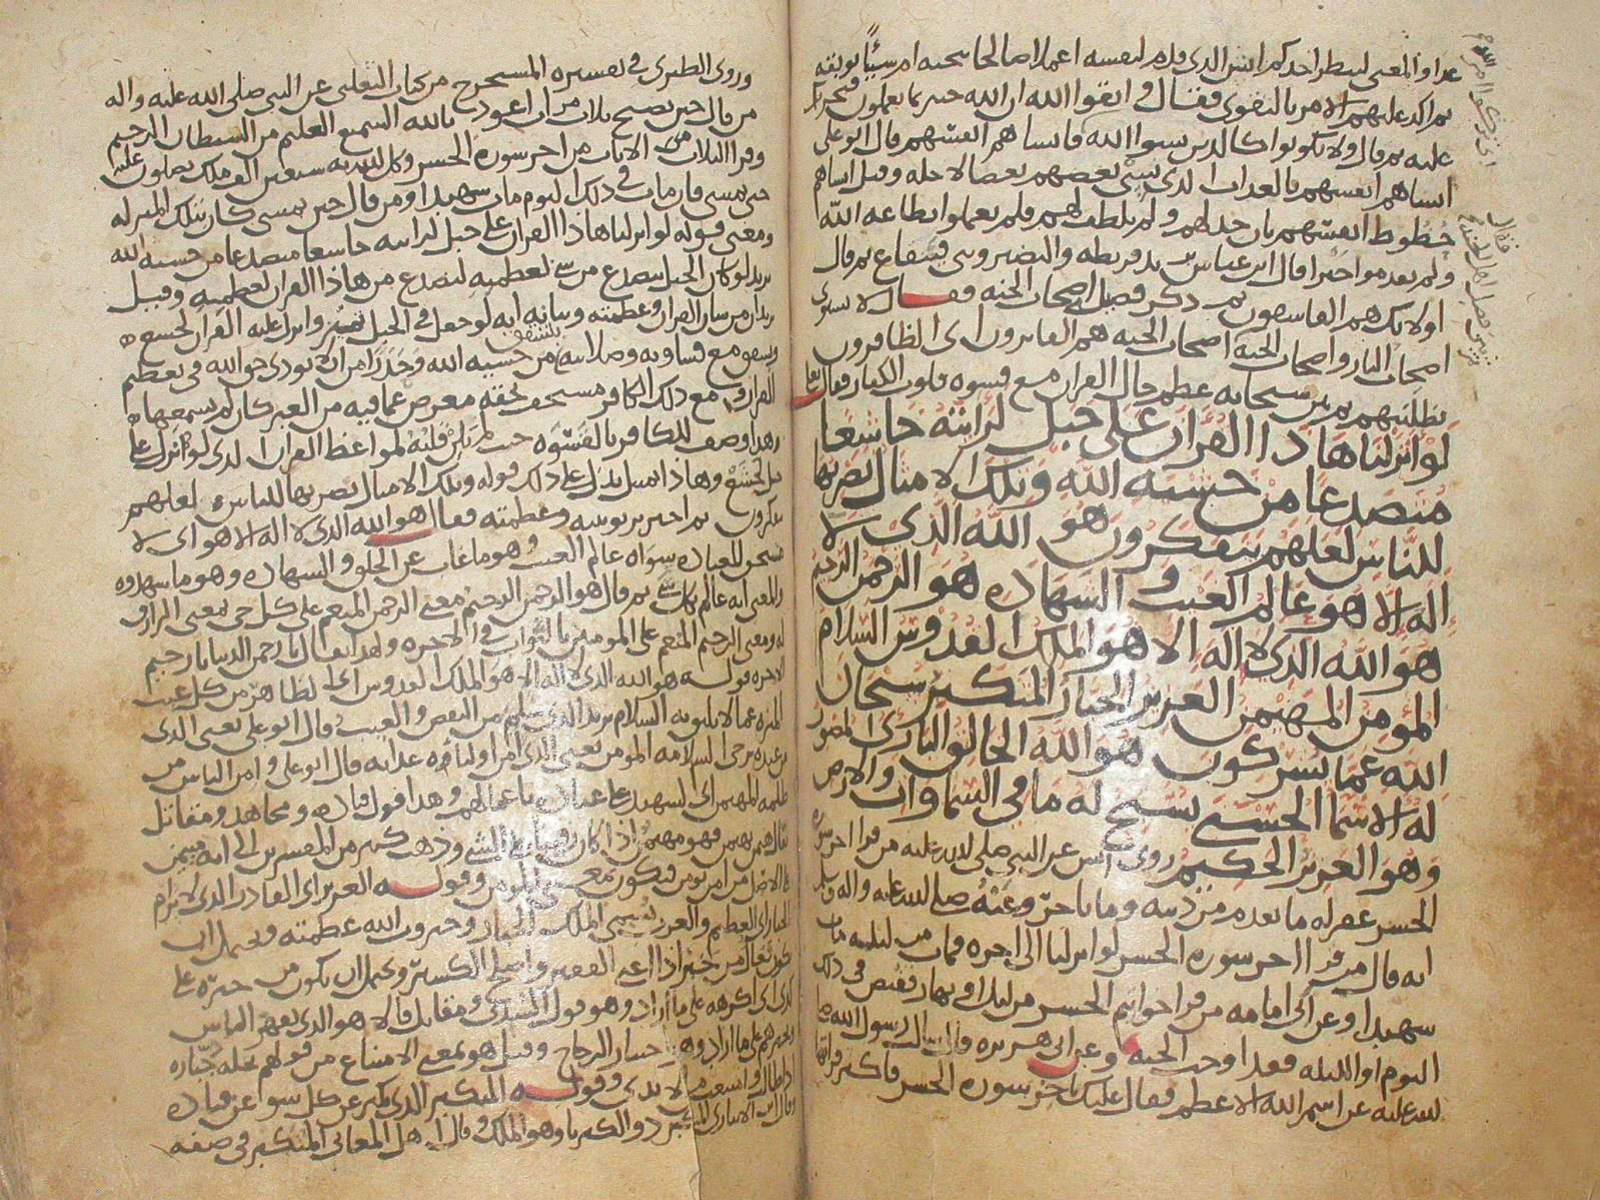 عدا والمعنى لينظر احدكم ايش الذى قدم لنفسه اعملا صالحا ينجيه ام سيئا يوبقه
ثم اكد عليهم الامر بالتقوى فقال واتقوا الله ان الله خبير بما تعملون
عليه ثم قال ولا تكونوا كالذين نسوا الله فانساهم انفسهم قال ابو على
انساهم انفسهم بالعذاب الذى نسى بعضهم بعضا لاجله وقيل انساهم
حظوظ انفسهم بان خذلهم ولم يلطف لهم فلم يعملوا بطاعه الله
ولم يقدموا خيرا قال ابن عباس يريد قريظه والنضير وبنى قينقاع ثم قال
اولائك هم الفاسقون ثم ذكر فصل اصحاب الجنه فقال لا يستوى
اصحاب النار واصحاب الجنه اصحاب الجنه هم الفايزون اى الظافرون
بطلبتهم ثم بين سبحانه عظم حال القران مع قسوه قلوب الكفار فقال تعالى
لو انزلنا هاذا القران على جبل لرايته خاشعا
متصدعا من خشيه الله وتلك الامثال نضربها
للناس لعلهم يتفكرون هو الله الذى لا
اله الا هو عالم الغيب والشهاده هو الرحمن الرحيم
هو الله الذى لا اله الا هو الملك القدوس السلام
المؤمن المهيمن العزيز الجبار المتكبر سبحان
الله عما يشركون هو الله الخالق البارى المصور
له الاسما الحسنى يسبح له ما فى السماوات والارض
وهو العزيز الحكيم روى انس عن النبى صلى الله عليه من قرا اخر سوره
الحشر غفر له ما تقدم من ذنبه وما تاخر وعنه صلى الله عليه واله
انه قال من قرا اخر سوره الحشر لو انزلنا الى اخره فمات من ليلته مات
شهيدا وعن ابى امامه من قرا خواتيم الحشر من ليل او نهار فقبض فى ذلك
اليوم او الليله فقد اوجب الجنه وعن ابى هريره قال سالت رسول الله صلى
الله عليه عن اسم الله الاعظم فقال عليك باخر سوره الحشر فاكثر قراتها
وروى الطبرى فى تفسيره المستخرج من كتاب الثعلبى عن النبى صلى الله عليه واله
من قال حين يصبح ثلاث مرات اعوذ بالله السميع العليم من الشيطان الرجيم
وقرا الثلاث الايات من اخر سوره الحشر وكل الله به سبعين الف ملك يصلون عليه
حتى يمسى فان مات فى ذلك اليوم مات شهيدا ومن قال حين يمسى كان بتلك المنزله
ومعنى قوله لو انزلنا هاذا القران على جبل لرايته خاشعا متصدعا من خشيه الله
يريد لو كان الجبل يتصدع من شى لعظمه لتصدع من هاذا القران لعظمه وقيل
القران لخشع
من خشيه الله وحذرا من ان لا يودى حق الله فى تعظيم
القران ومع ذلك الكافر مستخف بحقه معرض عما فيه من العبر كان لم يسمعها
وهذا وصف للكافر بالقسوه حيث لم يلن قلبه لمواعظ القران الذى لو انزل على
جبل لخشع وهاذا تمثيل يدل على ذلك قوله وتلك الامثال نضربها للناس لعلهم
يتفكرون ثم اخبر بربوبيته وعظمته فقال هو الله الذى لا اله الا هو اى لا
مستحق للعباده سواه عالم الغيب وهو ما غاب عن الخلق والشهاده وهو ما شهدوه
والمعنى انه عالم بكل شى ثم قال هو الرحمن الرحيم معنى الرحمن المنعم على كل حى بمعنى الرازق
له ومعنى الرحيم المنعم على المومنين بالثواب فى الاخره ولهذا يقال يا رحمن الدنيا يا رحيم
الاخره قوله هو الله الذى لا اله الا هو الملك القدوس اى الطاهر من كل عيب
المنزه عما لا يليق به السلام يريد الذى سلم من النقص والعيب وقال ابو على يعنى الذى
من عنده ترجى السلامه المومن يعنى الذى امن اولياءه عذابه قال ابو على وامن الناس من
ظلمه المهيمن اى الشهيد على عباده باعمالهم وهذا قول قتاده ومجاهد ومقاتل
يقال هيمن يهيمن فهو مهيمن اذا كان رقيبا على الشى وذهب كثير من المفسرين الى انه ميمن
فيكون بمعنى المومن وقوله العزيز اى القادر الذى لا يرام
الجبار اى العظيم والعرب تسمى الملك الجبار وجبروت الله عظمته ويحتمل ان
يكون فعال من جبر اذا اغنى الفقير واصلح الكسير ويحتمل ان يكون من جبره على
كذا اى اكرهه على ما اراد وهو قول السدى ومقاتل قالا هو الذى يقهر الناس
ويجبرهم على ما اراد وهو اختيار الزجاج وقيل هو بمعنى الامتناع من قولهم نخله جباره
وقوله المتكبر الذى تكبر عن كل سوء عن قتاده
وقال ابن الانبارى المتكبر ذو الكبريا وهو الملك وقال اهل المعانى المتكبر فى صفه